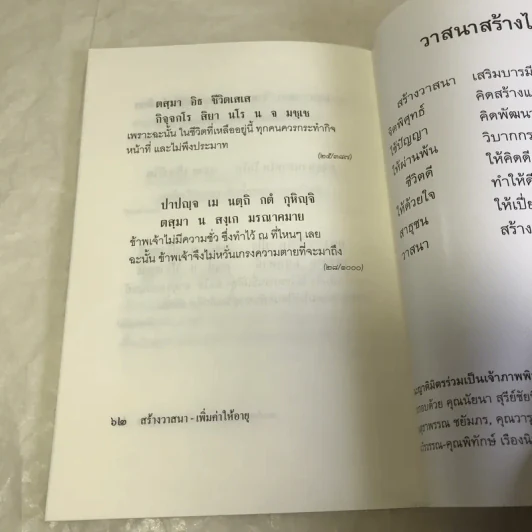 ตสฺมา อิธ ชีวิตเสเส
กิจฺจกโร สิยา นโร น จ มชฺเช
เพราะฉะนั้น ในชีวิตที่เหลืออยู่นี้ ทุกคนควรกระทำกิจ
หน้าที่ และไม่พึงประมาท
(๒๕/๓๘๗)
ปาปญฺจ เม นตฺถิ กตํ กุหิญฺจิ
ตสฺมา น สงฺเก มรณาคมาย
ข้าพเจ้าไม่มีความชั่ว ซึ่งทำไว้ ณ ที่ไหนๆ เลย
ฉะนั้น ข้าพเจ้าจึงไม่หวั่นเกรงความตายที่จะมาถึง
(๒๘/๑๐๐๐)
๖๒ สร้างวาสนา - เพิ่มค่าให้อายุ
วาสนาสร้าง
สร้างวาสนา เสริมบารมี
จิตพิสุทธิ์ คิดสร้าง
ใช้ปัญญา คิดพัฒน
ให้ผ่านพ้น วิบากกร
ชีวิตดี ให้คิดดี
ให้ด้วยใจ ทำให้
สาธุชน ให้เปี่ย
วาสนา สร้าง
ญาติมิตรร่วมเป็นเจ้าภาพ
กอบด้วย คุณนัยนา สุรีย์ชัย
สุราพรรณ ชยัมภร, คุณวา
วรรณ-คุณพิทักษ์ เรืองนิ